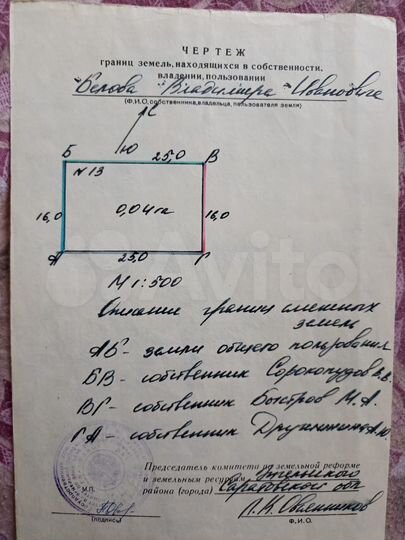 ЧЕРТЕЖ
границ земель, находящихся в собственности,
владении, пользовании
Белова Владимира Ивановича
(Ф.И.О, собственника, владельца, пользователя земли)
С
Ю
Б 25,0 В
N 13
16,0 0,04 га 16,0
А 25,0 Г
М 1:500
Описание границ смежных
земель
АБ - земли общего пользования
БВ - собственник Сорокопудов В.В.
ВГ - собственник Быстров М.А.
ГА - собственник
Председатель комитета по земельной реформе
и земельным ресурсам
района (города) Саратовской обл
М.П.
(подпись) Ф.И.О.
Avito